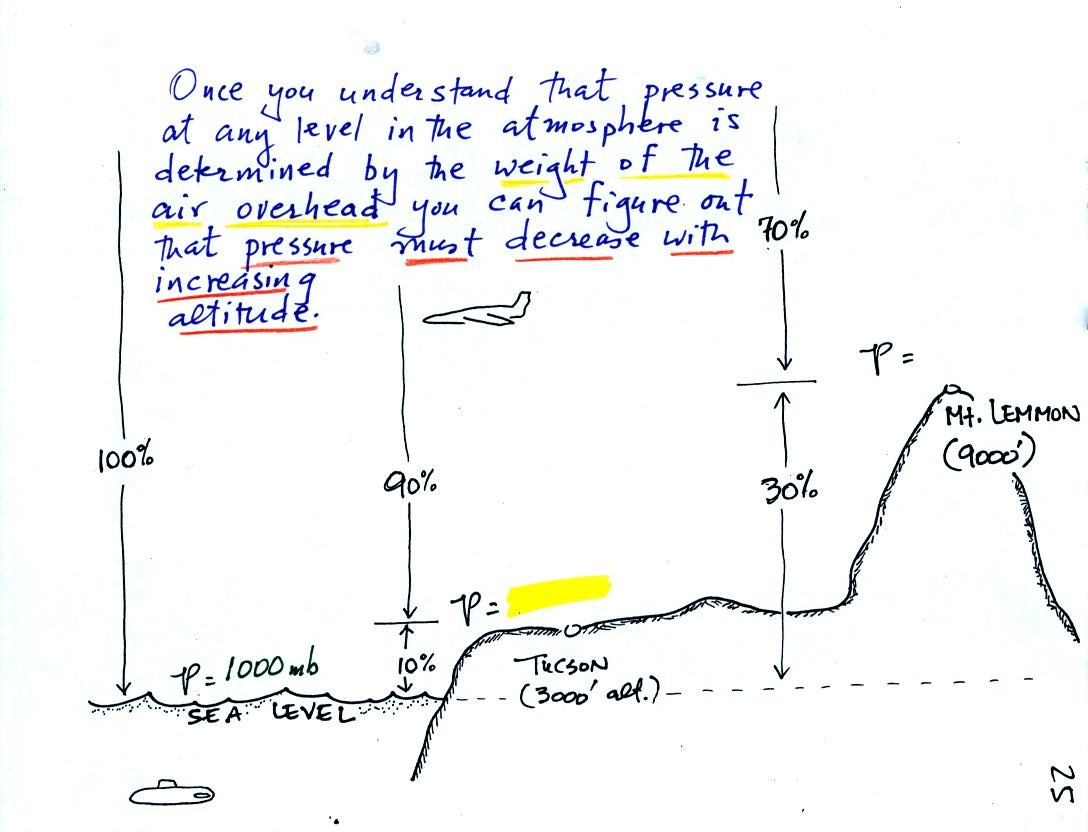 Once you understand that pressure
at any level in the atmosphere is
determined by the weight of the
air overhead you can figure out
that pressure must decrease with
increasing
altitude.
70%
P =
Mt. LEMMON
(9000')
100%
90%
30%
P =
10%
P = 1000 mb
TUCSON
(3000' alt.)
SEA LEVEL
25